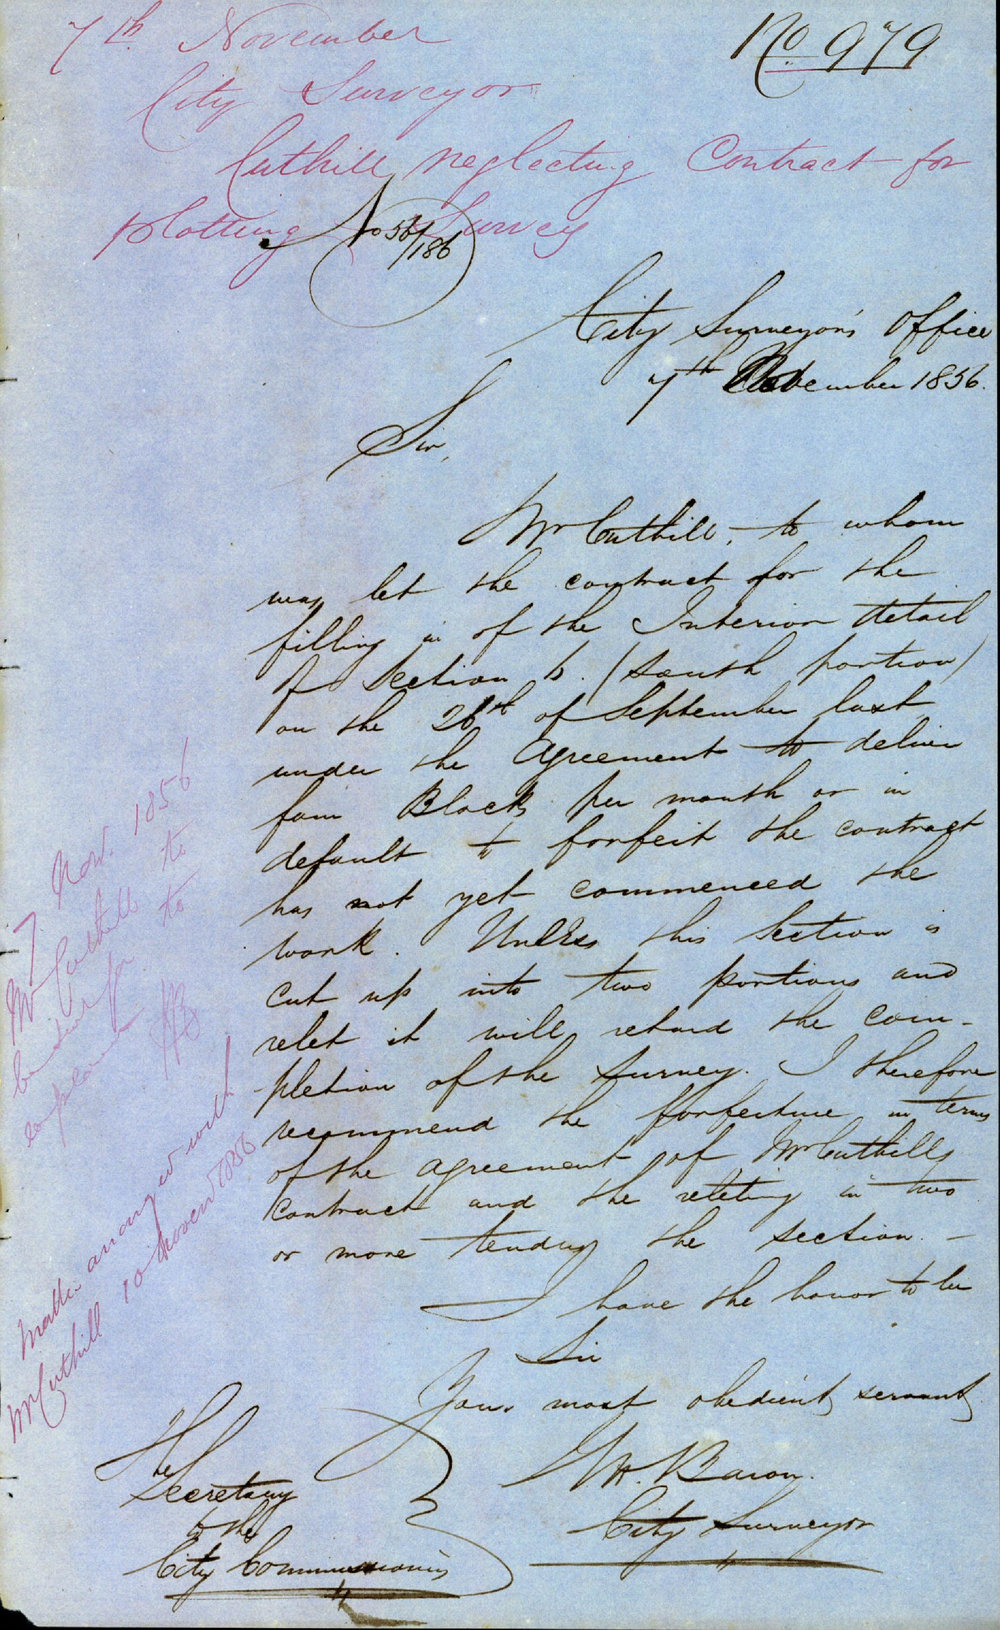 7th November
No 979
City Surveyor
Cuthill neglecting Contract for
plotting Survey
No 56/186
City Surveyor's Office
7th November 1856.
Sir,
Mr Cuthill, to whom
was let the contract for the
filling in of the Interior detail
of Section 6. (South portion)
on the 26th of September last
under the Agreement to deliver
four Blocks per month or in
default to forfeit the contract
has not yet commenced the
work. Unless this Section is
cut up into two portions and
relet it will retard the com-
pletion of the Survey. I therefore
recommend the forfeiture in terms
of the agreement of Mr Cuthills
contract and the reletting in two
or more the section. —
I have the honor to be
Sir
Your most obedient servant
City Surveyor
The
Secretary
to the
City Commissioners
7 Nov. 1856
Mr Cuthill to
be sent for to
explain
Matter arranged with
Mr Cuthill 10 November 1856